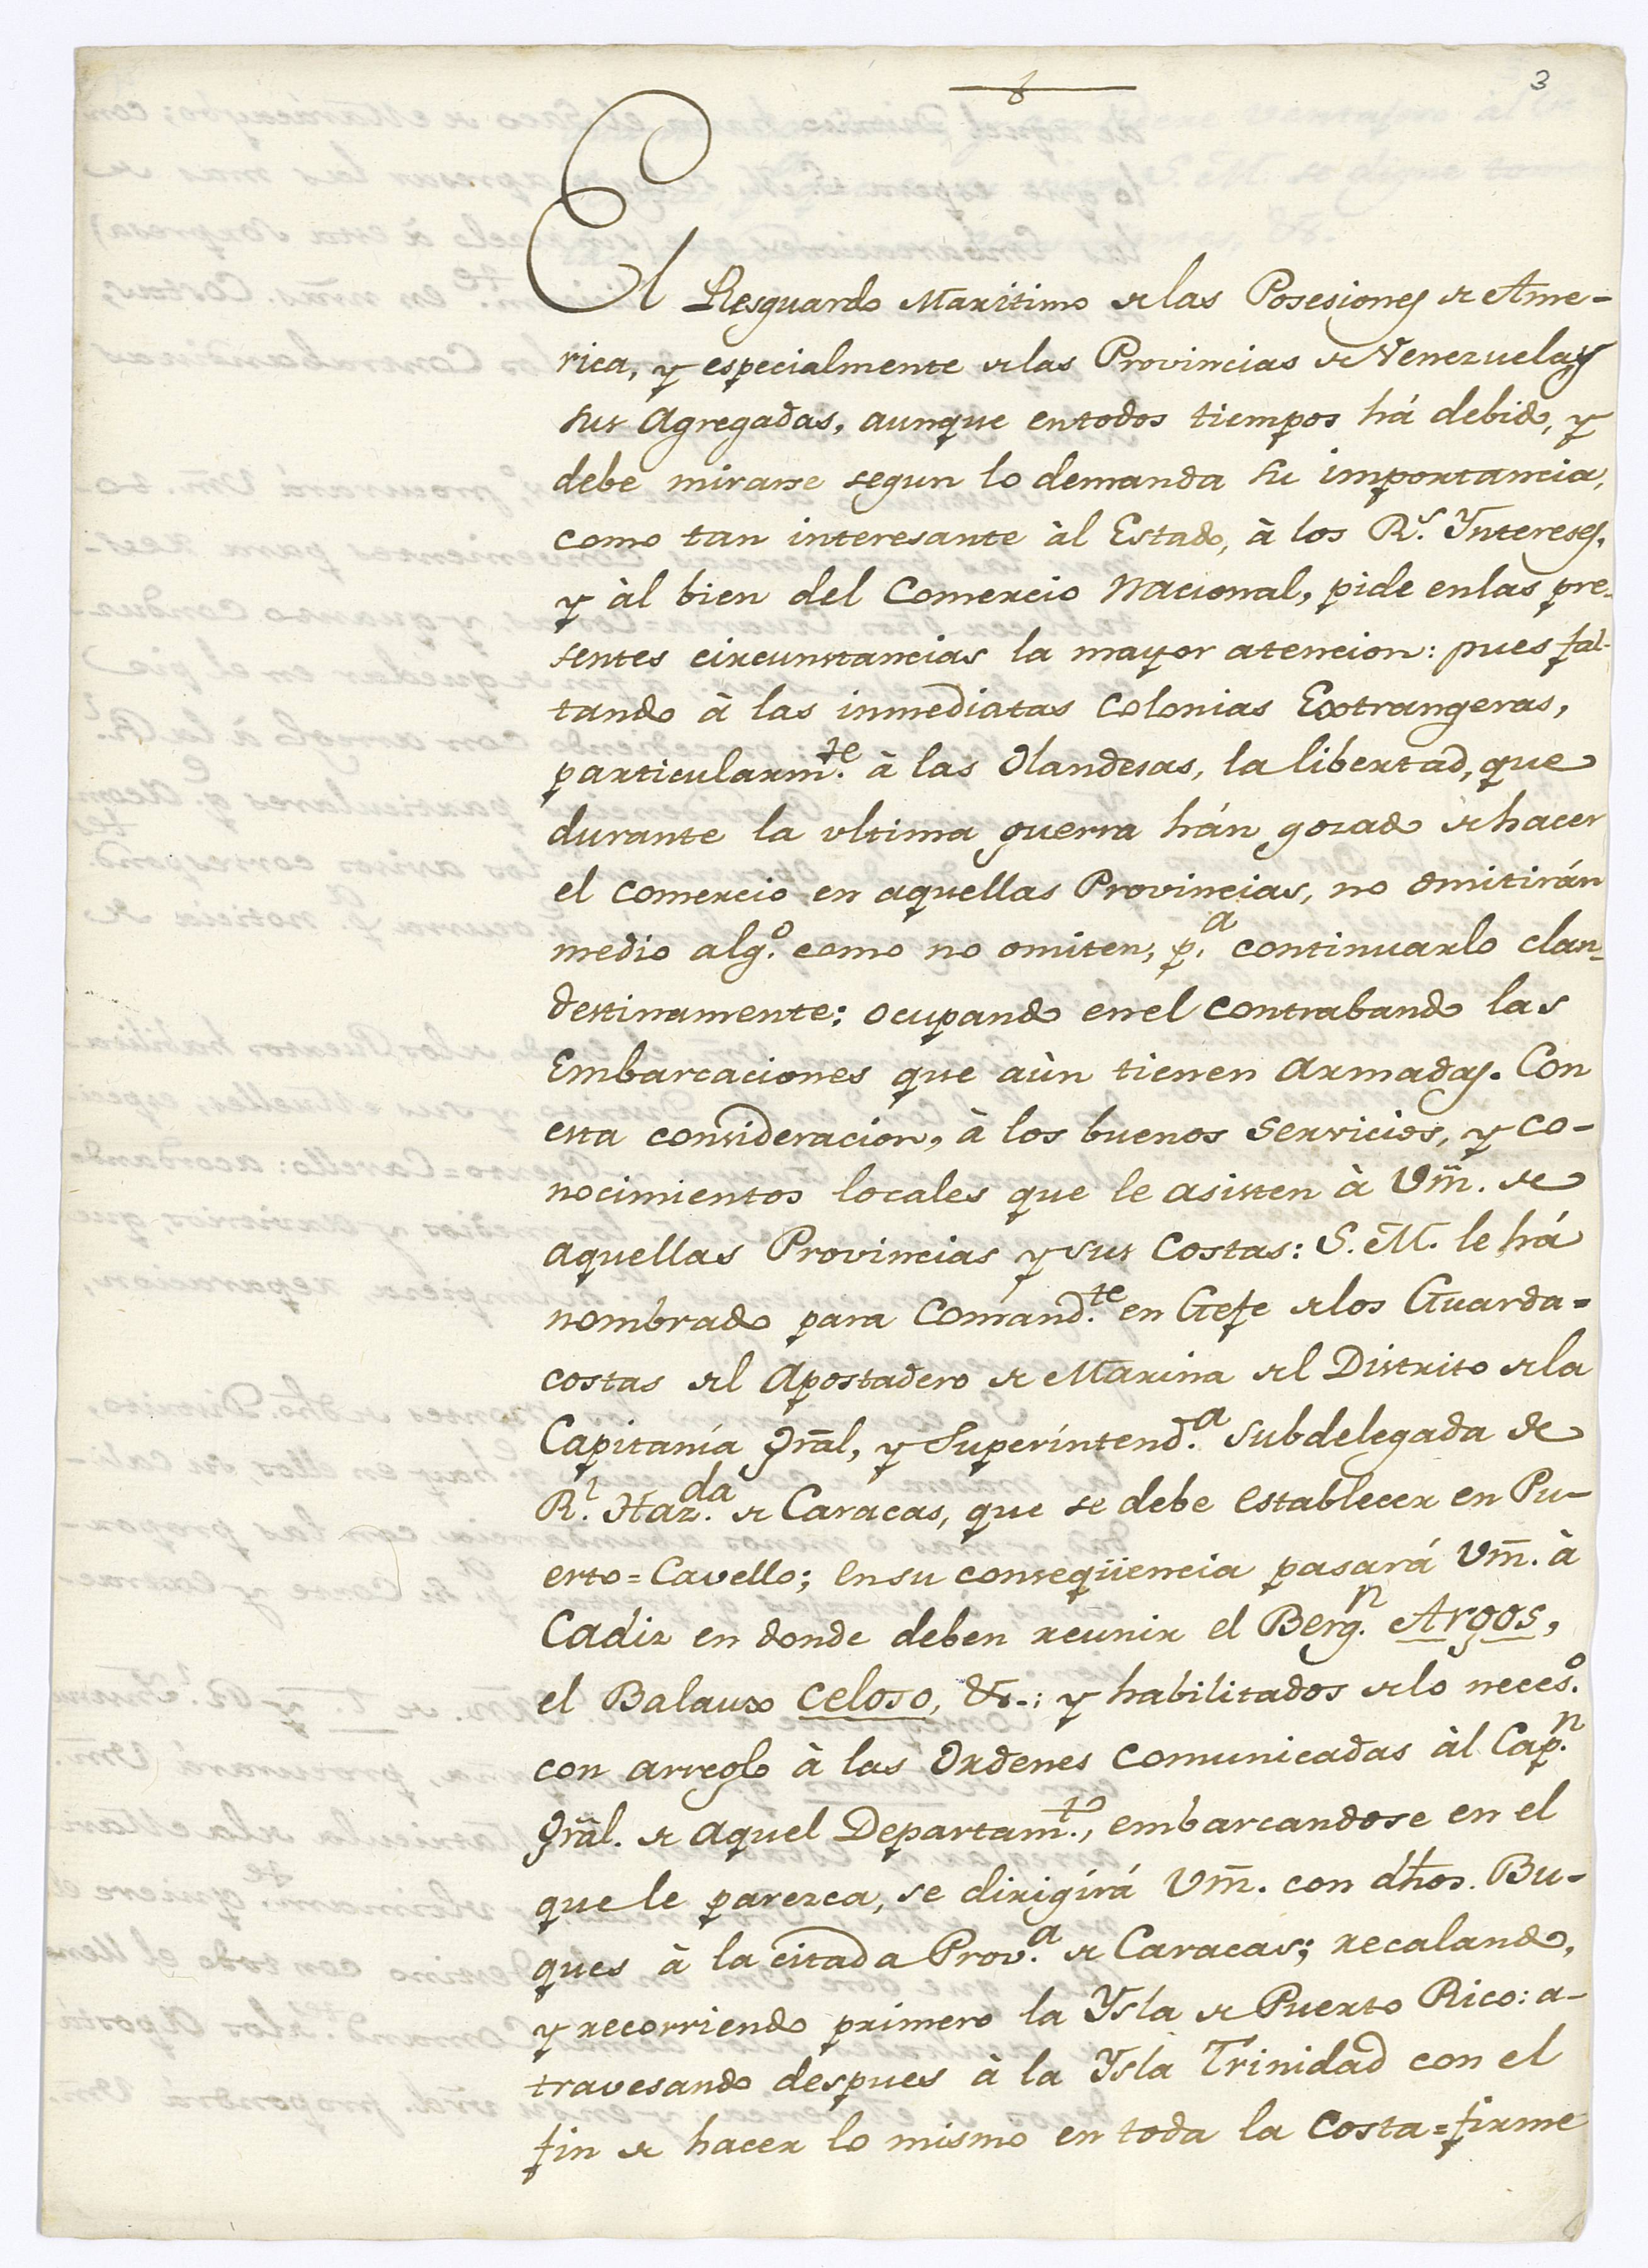 3
El Resguardo Maritimo de las Posesiones de Ame-
rica, y especialmente de las Provincias de Venezuela y
sus Agregadas, aunque en todos tiempos há debido, y
debe mirarse segun lo demanda su importancia,
como tan interesante àl Estado, à los R.^s Yntereses,
y àl bien del Comercio Nacional, pide en las pre-
sentes circunstancias la mayor atencion: pues fal-
tando à las inmediatas Colonias Extrangeras,
particularm.^te à las Olandesas, la libertad, que
durante la ultima guerra hán gozado de hacer
el comercio en aquellas Provincias, no omitirán
medio alg.^o como no omiten, p.^a continuarlo clan-
destinamente: ocupando en el contrabando las
Embarcaciones que aùn tienen armadas. Con
esta consideracion, à los buenos Servicios, y co-
nocimientos locales que le asisten à Vm̃. de
aquellas Provincias y sus Costas: S. M. le há
nombrado para Comand.^te en Gefe de los Guarda=
costas del Apostadero de Marina del Distrito de la
Capitanía Grãl, y Superintend.^a Subdelegada de
R.^l Haz.^da de Caracas, que se debe establecer en Pu-
erto=Cavello; en su conseqüencia pasará Vm̃. à
Cadiz en donde deben reunir el Berg.^n Argos,
el Balaux Celoso, &.: y habilitados de lo neces.^o
con arreglo à las Ordenes comunicadas àl Cap.^n
Grãl. de aquel Departam.^to, embarcandose en el
que le parezca, se dirigirá Vm̃. con dhos. Bu-
ques à la citada Prov.^a de Caracas; recalando,
y recorriendo primero la Ysla de Puerto Rico: a-
travesando despues à la Ysla Trinidad con el
fin de hacer lo mismo en toda la Costa=firme